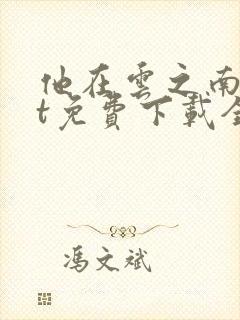 他在雲之南
t免費下載全
馮文斌